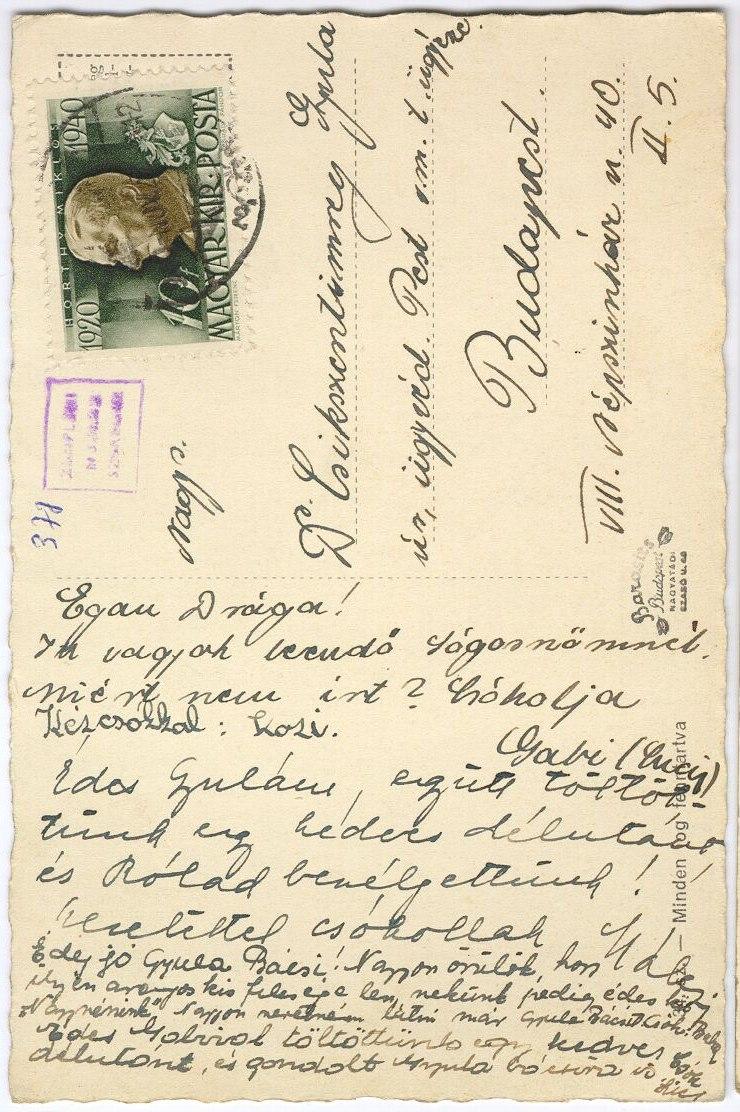 HORTHY MIKLÓS
1920 1940
10f
MAGYAR KIR. POSTA
371
Nagys.
Dr. Csikszentimrey Gyula
úr, ügyvéd. Pest vm. t. ügyész.
Budapest.
VIII. Népszinház u. 40.
II. 5.
Barasits
Budapest
NAGYATÁDI
SZABÓ U. 48
— Minden jog fenntartva
Drága!
Itt vagyok sógornőmnél.
Miért nem írt? Csókolja
Gabi
Kézcsókkal:
Édes Gyulám, együtt töltöt-
tünk egy kedves délutánt
és Rólad beszélgettünk!
Szeretettel csókollak
jó Gyula Bácsi! Nagyon örülök, hogy
ilyen aranyos kis felesége lesz, nekünk pedig édes
Nagynénink. Nagyon szeretném látni már Gyula Bácsit
Édes Gabival töltöttünk egy kedves
délutánt, és gondolt Gyula bácsira is